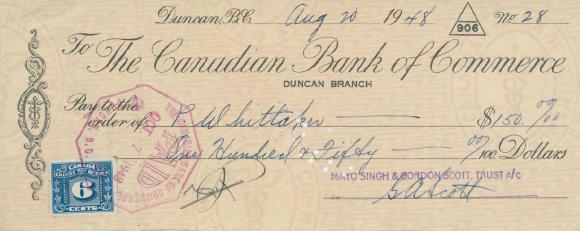 Duncan, B.C. Aug 20 1948 906 No. 28
To The Canadian Bank of Commerce
DUNCAN BRANCH
Pay to the
order of P Whittaker $150.00/00
One Hundred & Fifty 00/100 Dollars
MAYO SINGH & GORDON SCOTT, TRUST A/C
G A Scott
CANADA
6
CENTS
PAID
1948